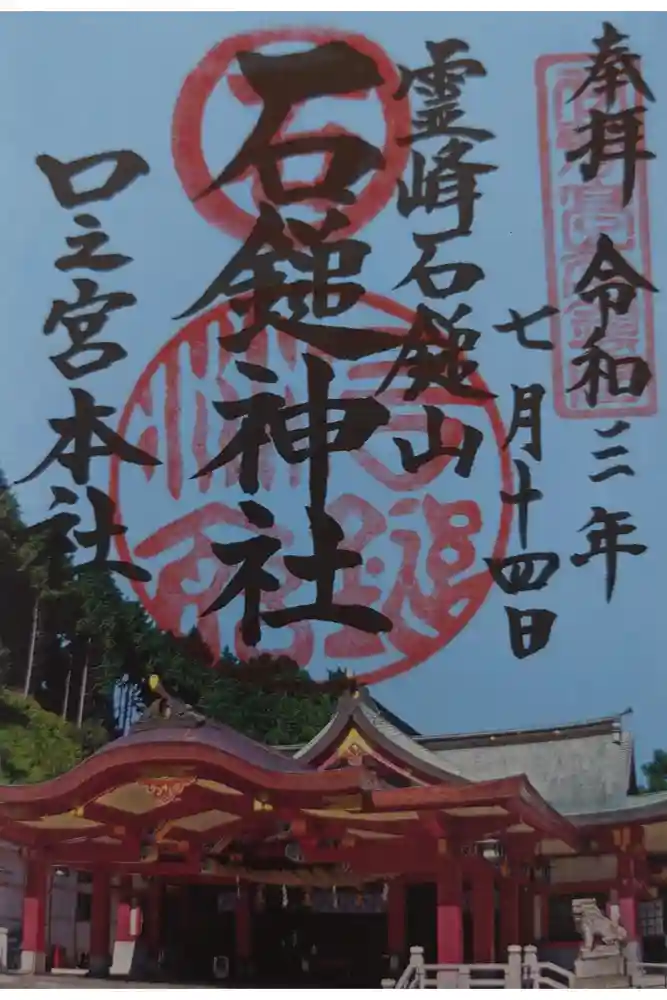 奉拝
令和三年
七月十四日
霊峰石鎚山
石鎚神社
口之宮本社